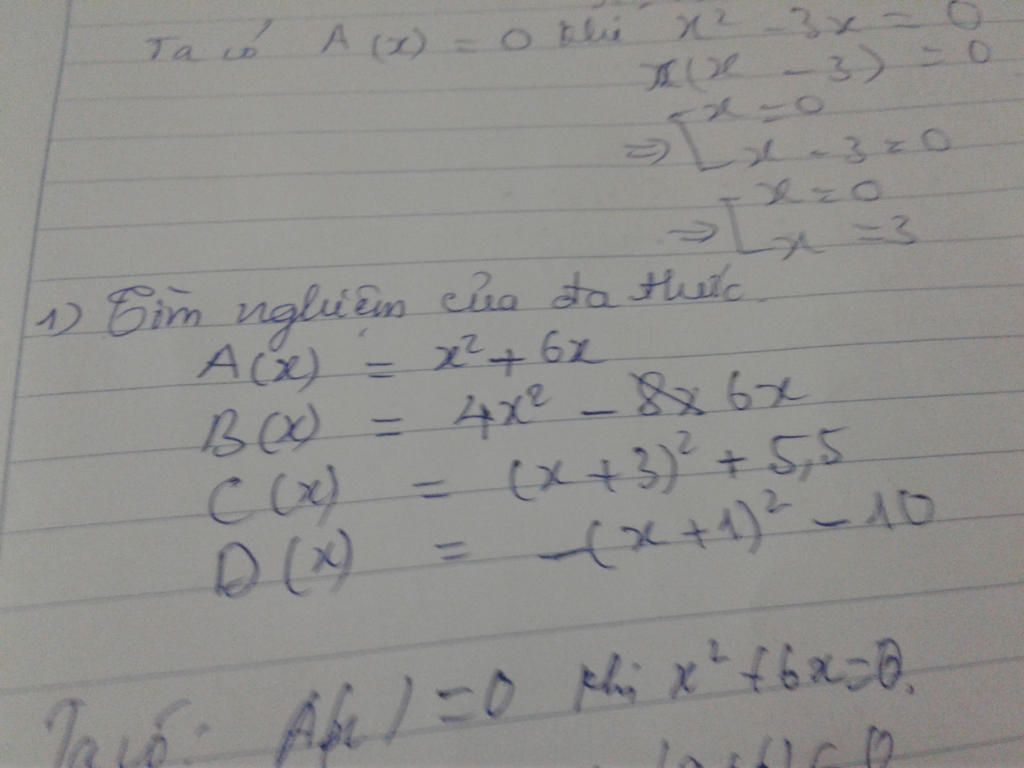 Ta có A(x) = 0 khi x² - 3x = 0
x(x - 3) = 0
⇒ [ x = 0
x - 3 = 0
⇒ [ x = 0
x = 3
1) Tìm nghiệm của đa thức
A(x) = x² + 6x
B(x) = 4x² - 6x
C(x) = (x + 3)² + 5,5
D(x) = -(x + 1)² - 10
Ta có: A(x) = 0 khi x² + 6x = 0.